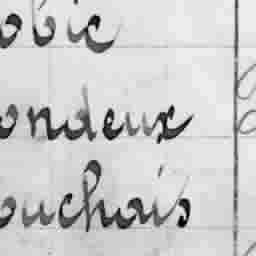 obic
ondeux
ouchais